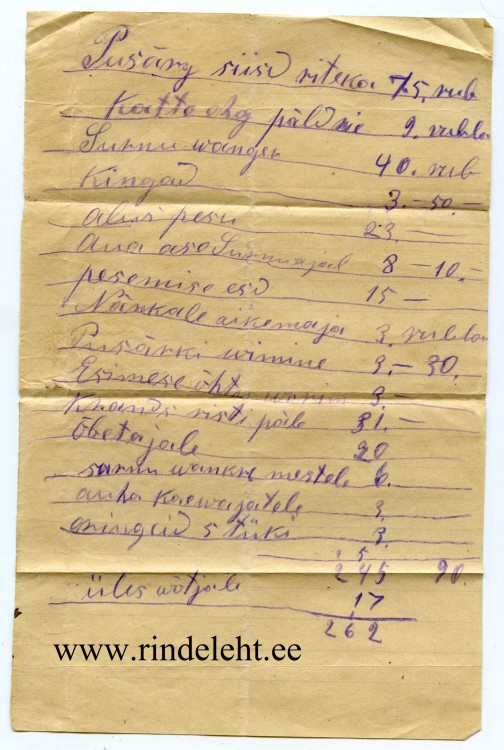 Pusärg siise riteka 75. rub
Katte ehg päld nie 9. rubla
Surnu wanger 40. rub
Kingad 3.-50.-
alus pesu 23.-
Aua aso Surnuajal 8-10.-
pesemise esd 15-
Nänkale äikemaja 3. rubla
Pusärki wimine 3.-30.
Esimese õhtu 3-
risti päle 31.-
Õbetajale 20
surnu wankri mestele 6.
auha kaewajatele 3.
eningeid 5 tüki 3.
5
245 90.
üles wõtjale 17
262
www.rindeleht.ee